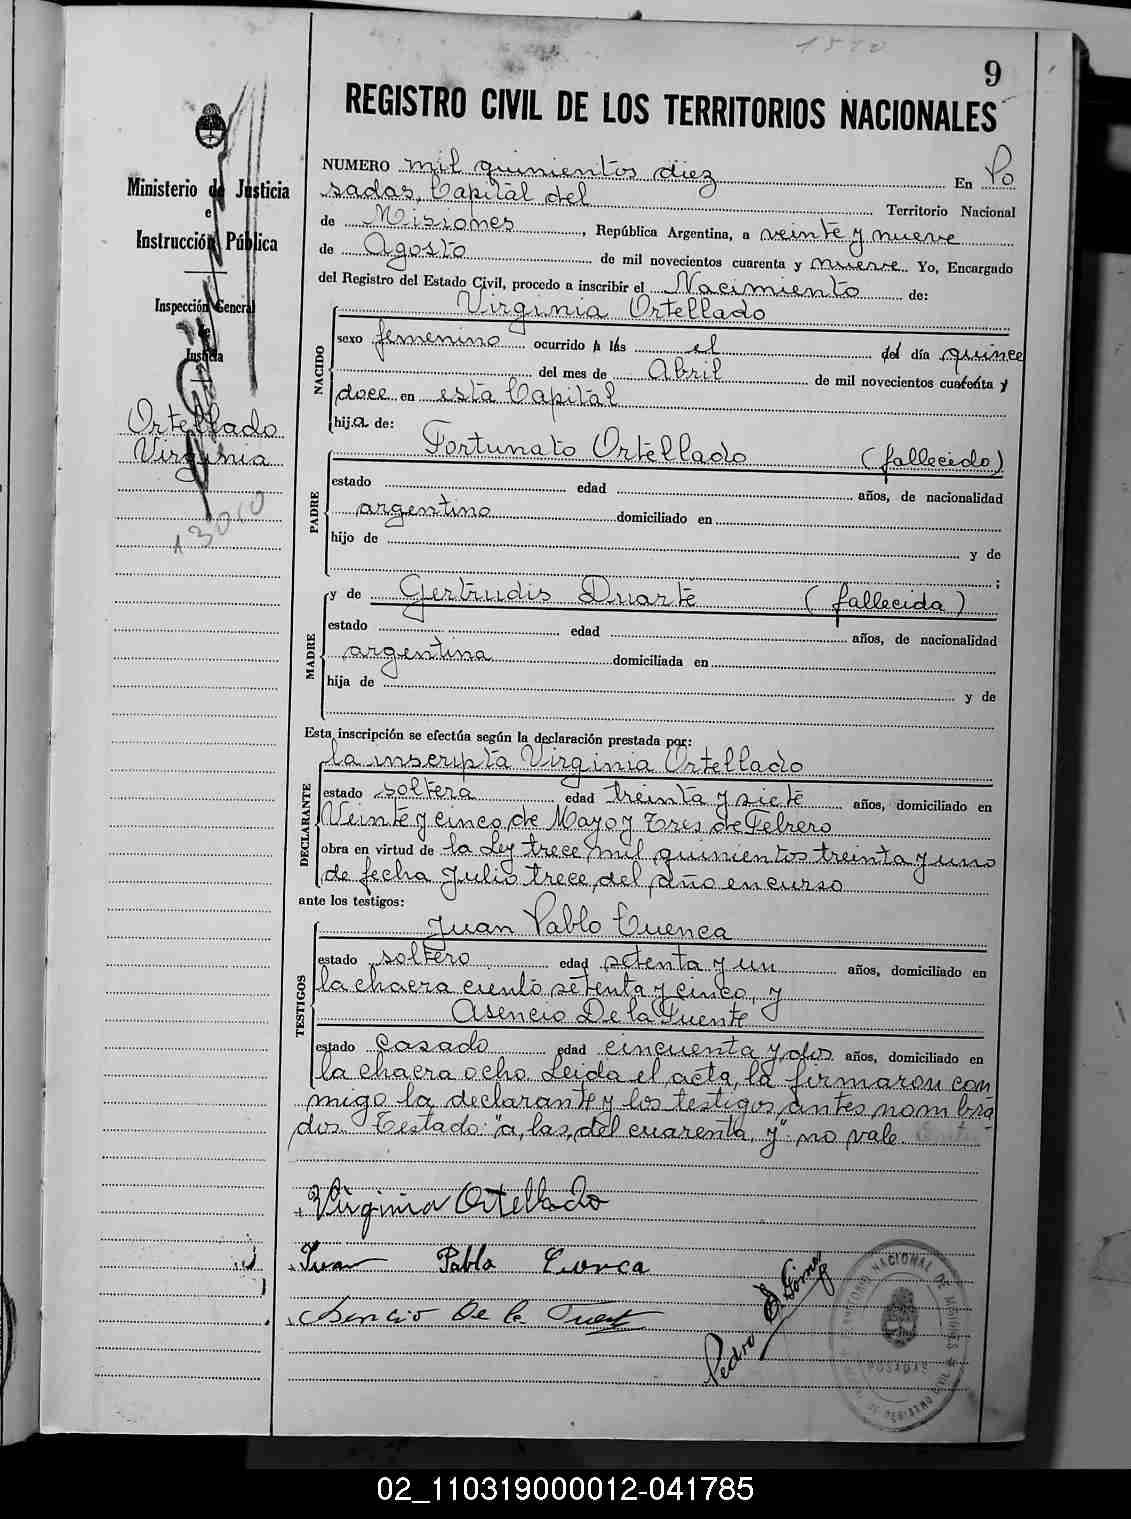 9
REGISTRO CIVIL DE LOS TERRITORIOS NACIONALES
Ministerio de Justicia
e
Instrucción Pública
Inspección General
de
Justicia
Ortellado
Virginia
A 3010
NUMERO mil quinientos diez En Po
sadas, Capital del Territorio Nacional
de Misiones, República Argentina, a veinte y nueve
de Agosto de mil novecientos cuarenta y nueve Yo, Encargado
del Registro del Estado Civil, procedo a inscribir el Nacimiento de:
NACIDO
Virginia Ortellado
sexo femenino ocurrido a las el del día quince
del mes de Abril de mil novecientos cuarenta y
doce en esta Capital
hija de:
PADRE
Fortunato Ortellado (fallecido)
estado edad años, de nacionalidad
argentino domiciliado en
hijo de y de
;
MADRE
y de Gertrudis Duarte (fallecida)
estado edad años, de nacionalidad
argentina domiciliada en
hija de y de
Esta inscripción se efectúa según la declaración prestada por:
DECLARANTE
la inscripta Virginia Ortellado
estado soltera edad treinta y siete años, domiciliado en
Veinte y cinco de Mayo y Tres de Febrero
obra en virtud de la Ley trece mil quinientos treinta y uno
de fecha Julio trece, del año en curso
ante los testigos:
TESTIGOS
Juan Pablo Cuenca
estado soltero edad setenta y un años, domiciliado en
la chacra ciento setenta y cinco, y
Asencio De la Fuente
estado casado edad cincuenta y dos años, domiciliado en
la chacra ocho. Leida el acta, la firmaron con
migo la declarante y los testigos antes nombra
dos. Testado: "a, las, del cuarenta, y" no vale.
Virginia Ortellado
Juan Pablo Cuenca
Asencio De la Fuente
Pedro
02_110319000012-041785